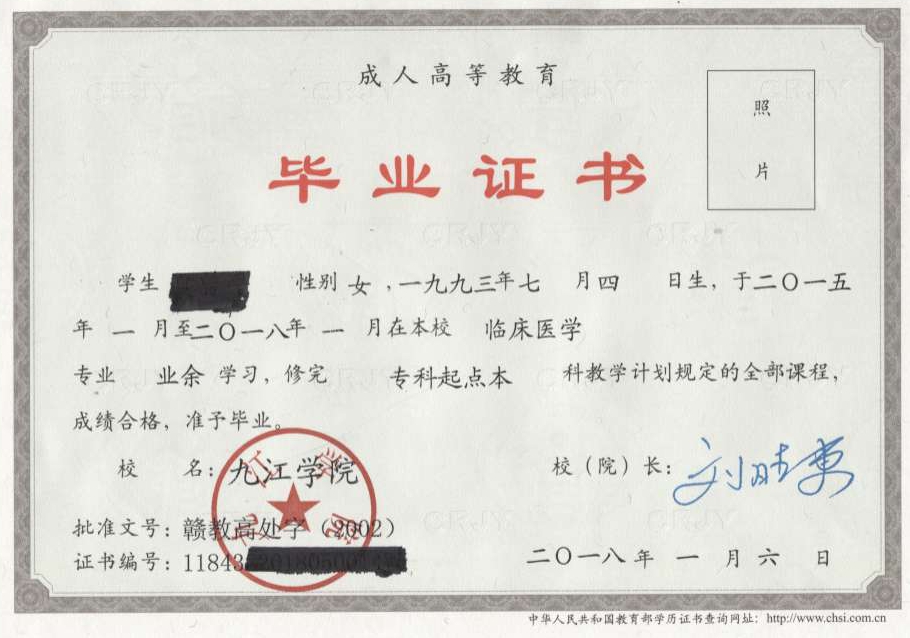 成人高等教育
照
片
毕业证书
学生 性别 女，一九九三年七 月四 日生，于二〇一五
年 一 月至二〇一八年 一 月在本校 临床医学
专业 业余 学习，修完 专科起点本 科教学计划规定的全部课程，
成绩合格，准予毕业。
校 名：九江学院
校（院）长：
批准文号：赣教高处字（2002）
证书编号：11843
二〇一八年 一 月 六 日
中华人民共和国教育部学历证书查询网址：http://www.chsi.com.cn